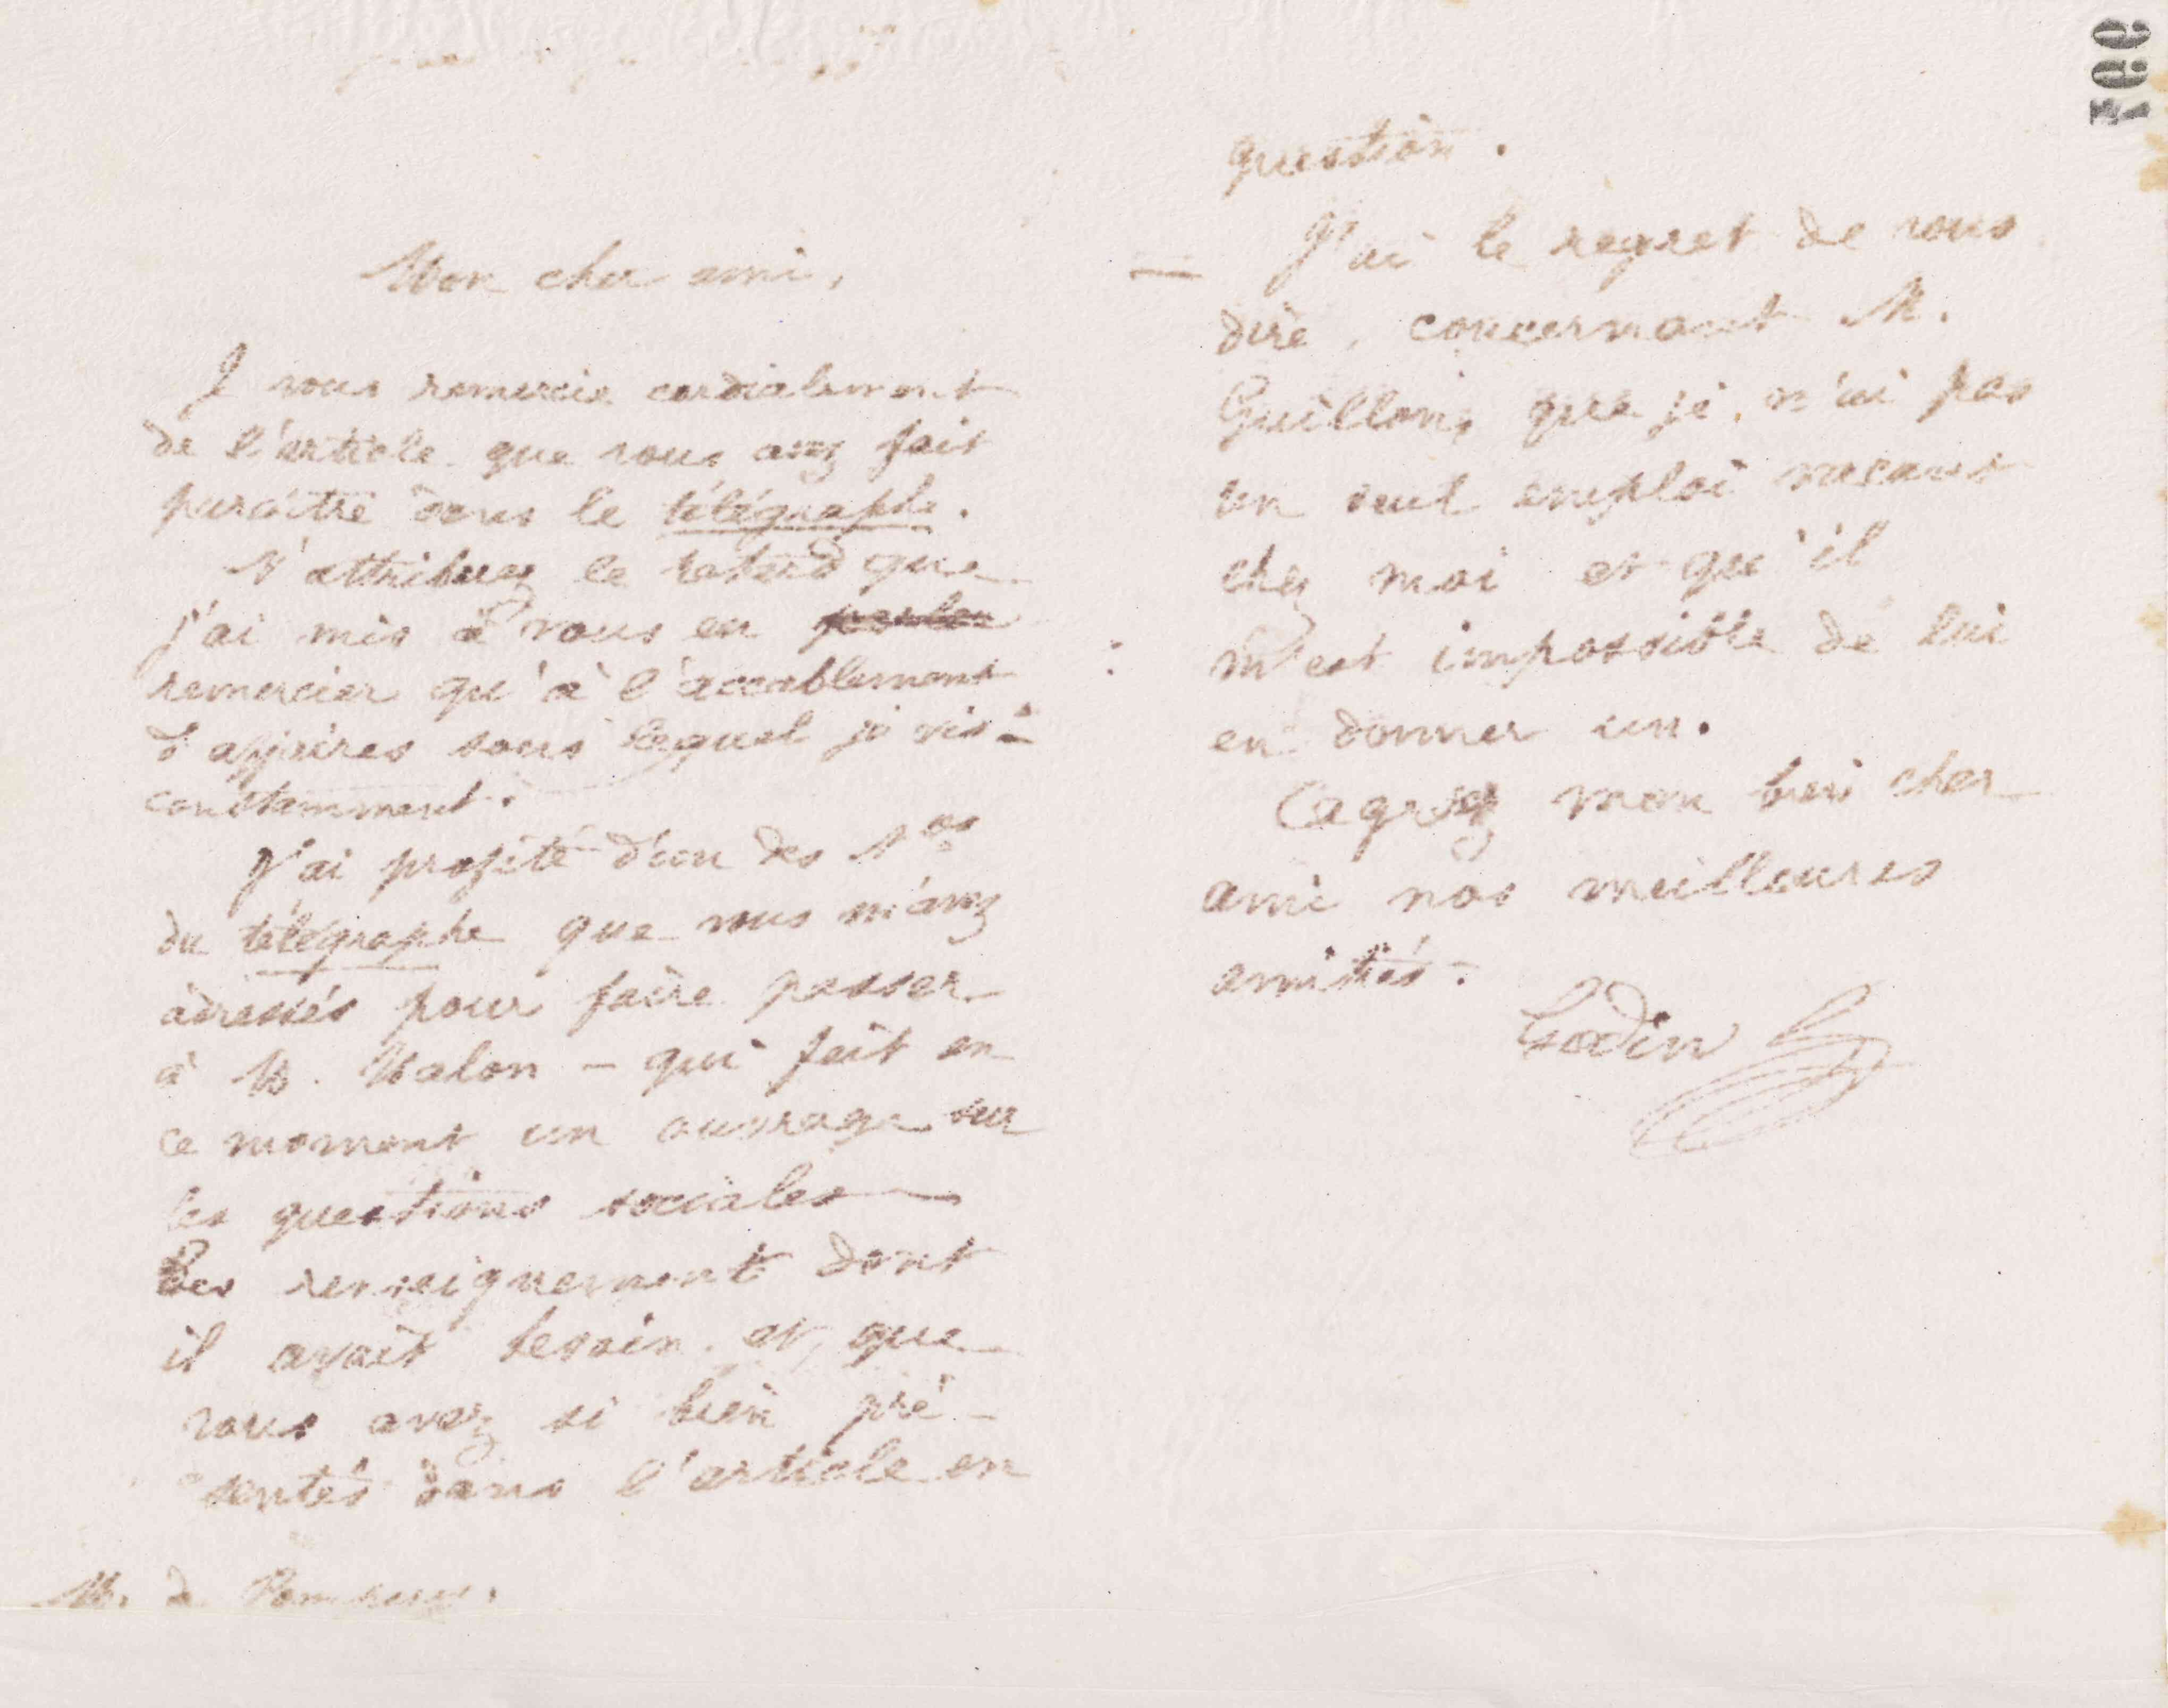 Mon cher ami,
Je vous remercie cordialement
de l'article que vous avez fait
paraître dans le télégraphe.
N'attribuez le retard que
j'ai mis à vous en parler
remercier qu'à l'accablement
d'affaires sous lequel je vis
constamment.
J'ai profité d'un des Nos
du télégraphe que vous m'avez
adressés pour faire passer
à M. Malon – qui fait en
ce moment un ouvrage sur
les questions sociales –
les renseignements dont
il avait besoin et que
vous avez si bien pré-
sentés dans l'article en
M. de
question.
– J'ai le regret de vous
dire, concernant M.
Guillon, que je n'ai pas
un seul emploi vacant
chez moi et qu'il
m'est impossible de lui
en donner un.
Eagréez mon bien cher
ami nos meilleures
amitiés.
Godin
997